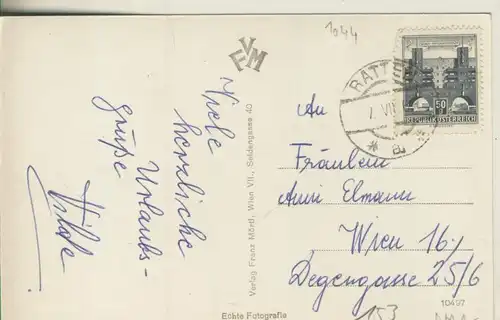 1044
VFM
Viele
herzliche
Urlaubs-
grüße
Hilde
Verlag Franz Mörtl, Wien VII., Seidengasse 40
Echte Fotografie
RATT
7. VII
a
50 g
REPUBLIK ÖSTERREICH
An
Fräulein
Anni Elmann
Wien 16.
Degengasse 25/6
10497
153